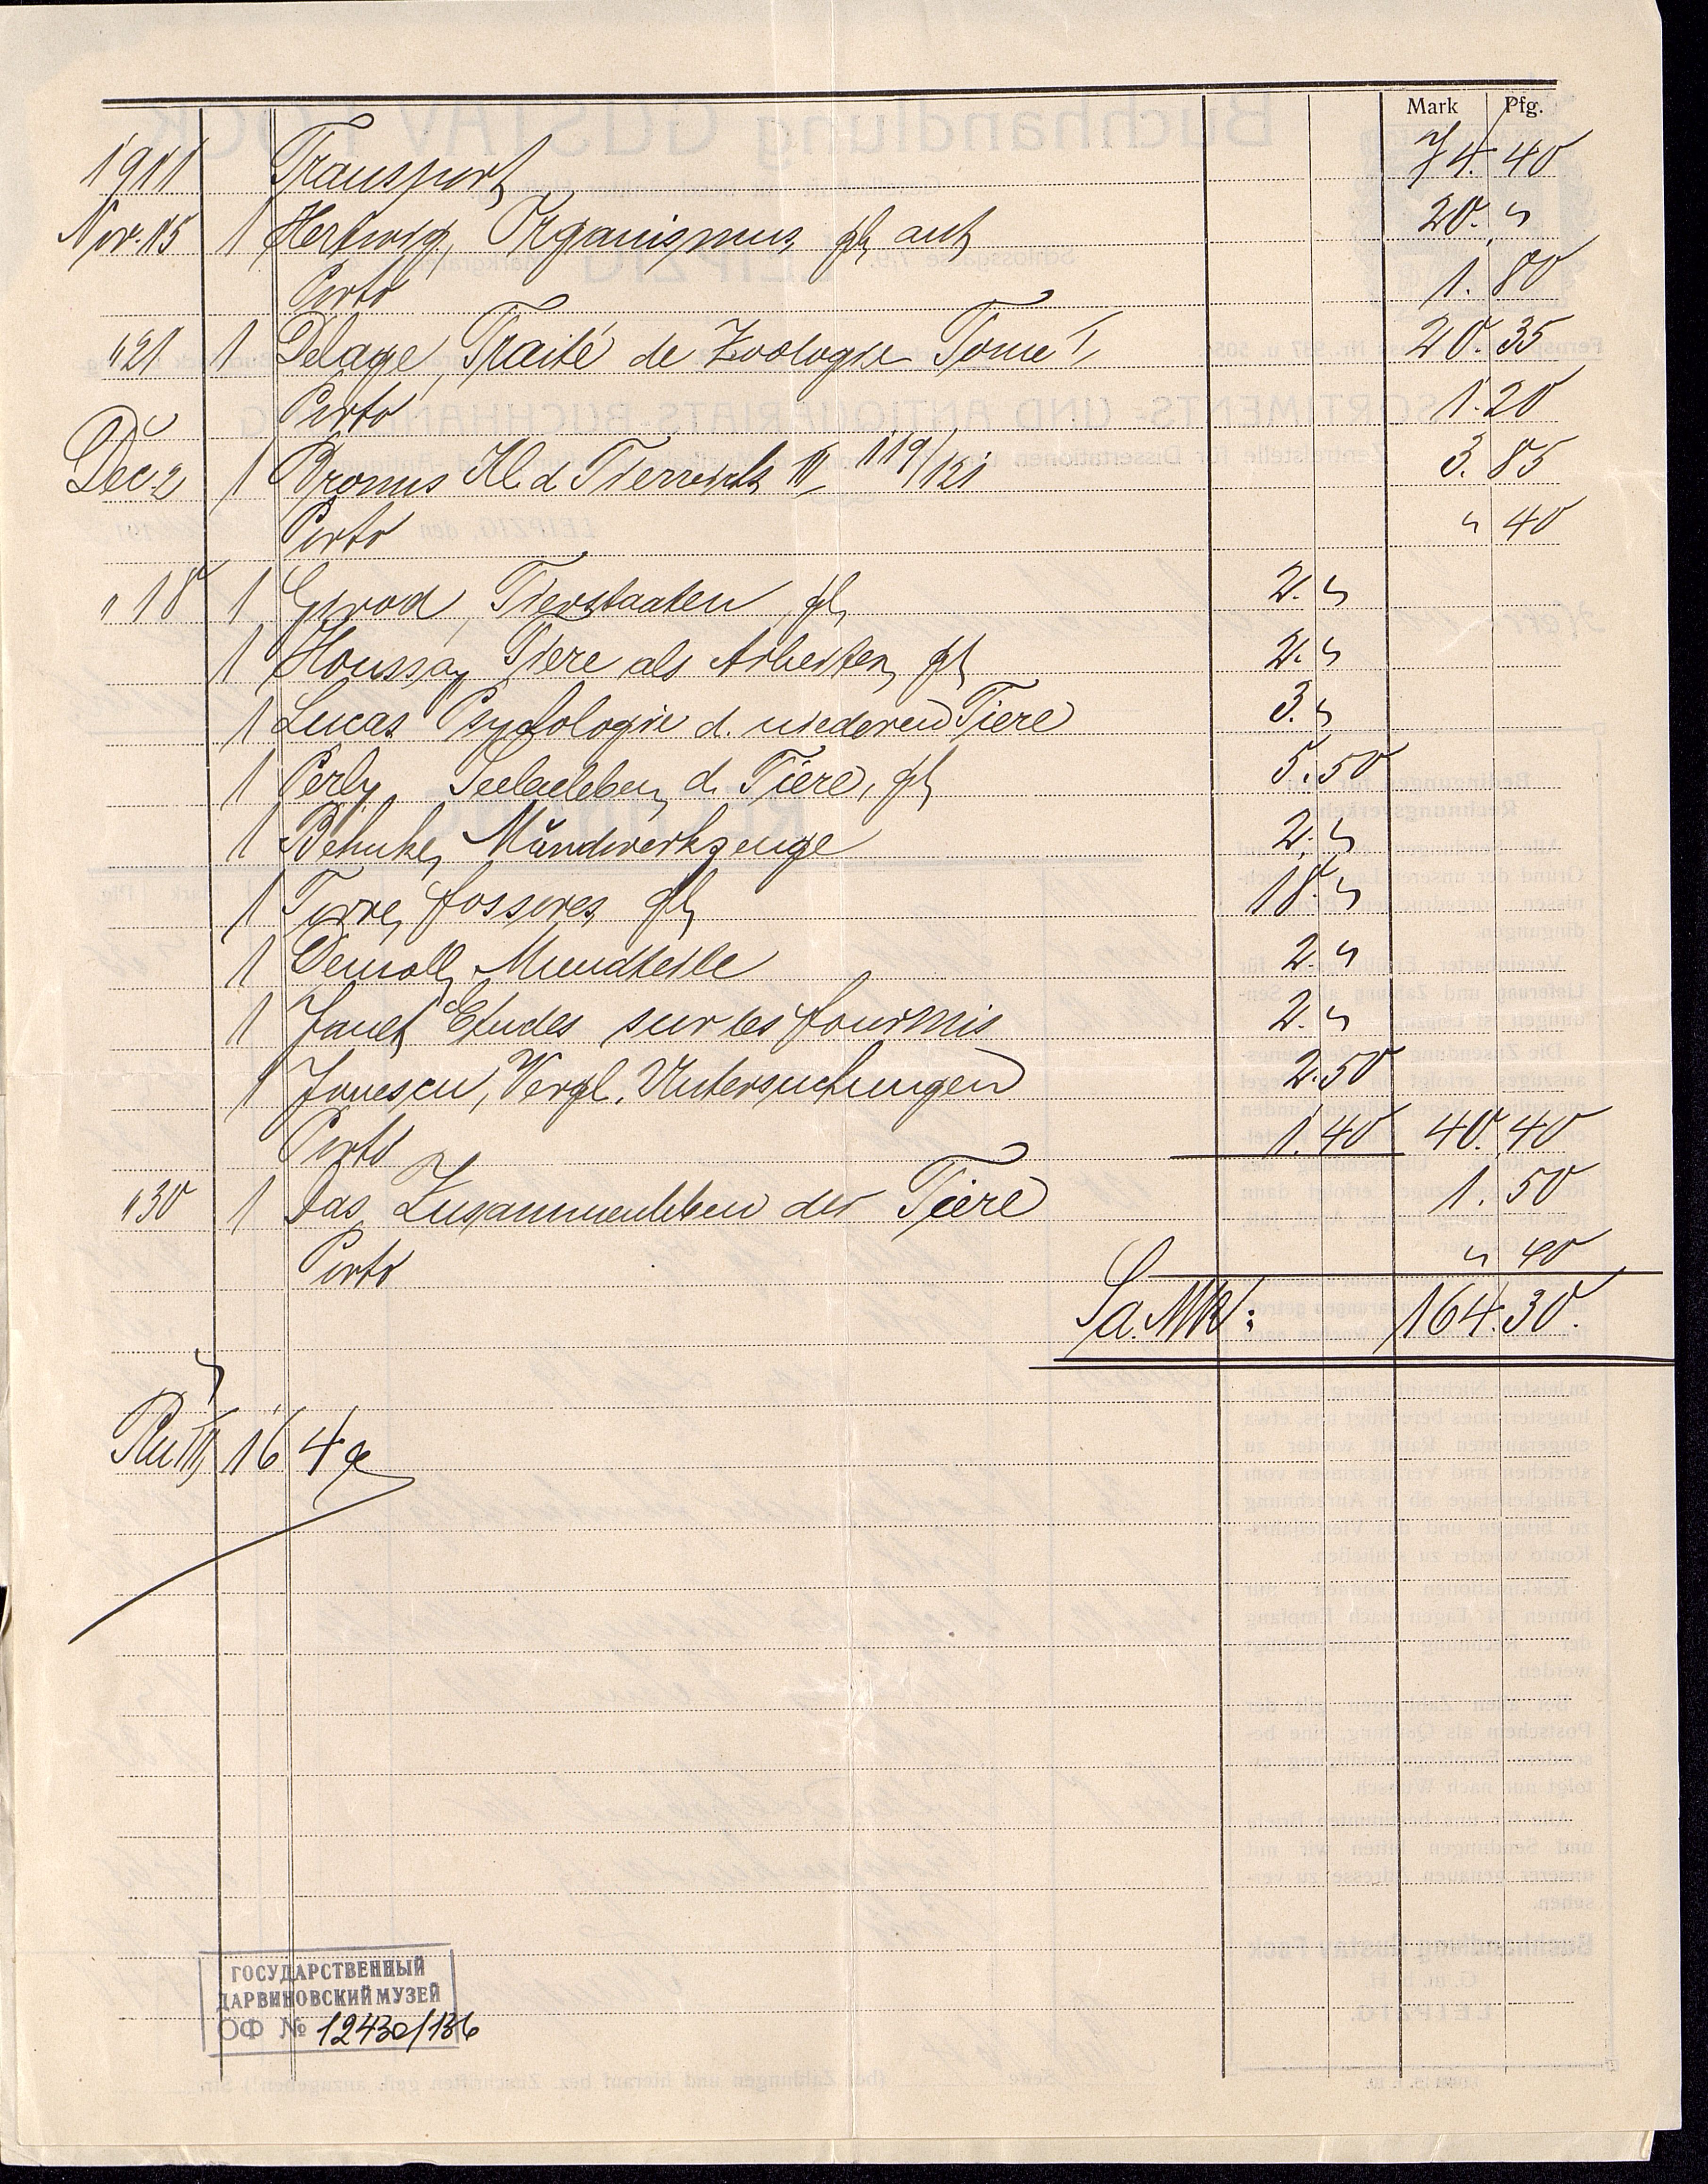 Mark Pfg.
1911 Transport 74. 40
Nov. 15 1 Hertwig, Organismus, gb, ant. 20. "
Porto 1. 80
" 21 1 Delage, Traité de Zoologie Tome I, 20. 35
Porto 1. 20
Dec 2 1 Bronns Kl. d. Tierreichs III, 119/121 3. 85
Porto " 40
" 18 1 Girod, Tierstaaten, gb, 2. "
1 Houssay Tiere als Arbeiter, gb, 2. "
1 Lucas Psychologie d. niederen Tiere 3. "
1 Perty Seelenleben d. Tiere, gb, 5. 50
1 Behnke, Mundwerkzeuge 2. "
1 fosseres gb, 18. "
1 Demoll, Mundteile 2. "
1 Janet Etudes sur les fourmis 2. "
1 Jonescu, Vergl. Untersuchungen 2. 50
Porto 1. 40 40. 40
" 30 1 Das Zusammenleben der Tiere 1. 50
Porto " 40
Sa. Mk: 164. 30.
164
ГОСУДАРСТВЕННЫЙ
ДАРВИНОВСКИЙ МУЗЕЙ
ОФ № 12430/136